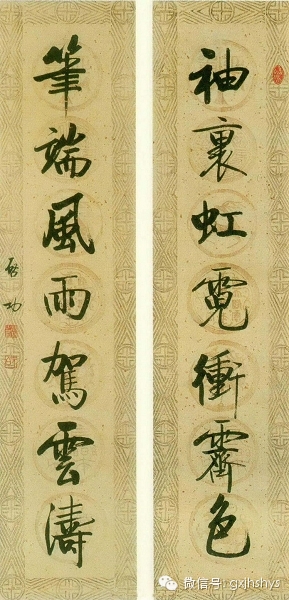 袖裏虹霓衝霽色
筆端風雨駕雲濤
啓功
微信号: gxjhshys